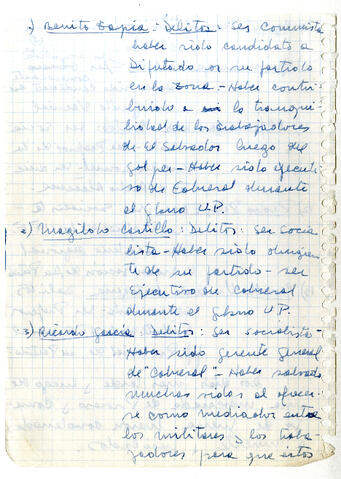 1) Benito Tapia: Delitos: Ser comunista
haber sido candidato a
Diputado por su partido
en la zona - Haber contri-
buido a la tranqui-
lidad de los trabajadores
de El Salvador luego del
golpe - Haber sido ejecuti-
vo de Cobresal durante
el gbno U.P.
2) Magindo Castillo: Delitos: Ser socia-
lista - Haber sido dirigen-
te de su partido - ser
Ejecutivo de Cobresal
durante el gbno U.P.
3) Ricardo García Delitos: Ser socialista -
Haber sido gerente general
de "Cobresal" - Haber salvado
muchas vidas al ofrecer-
se como mediador entre
los militares y los traba-
jadores para que éstos